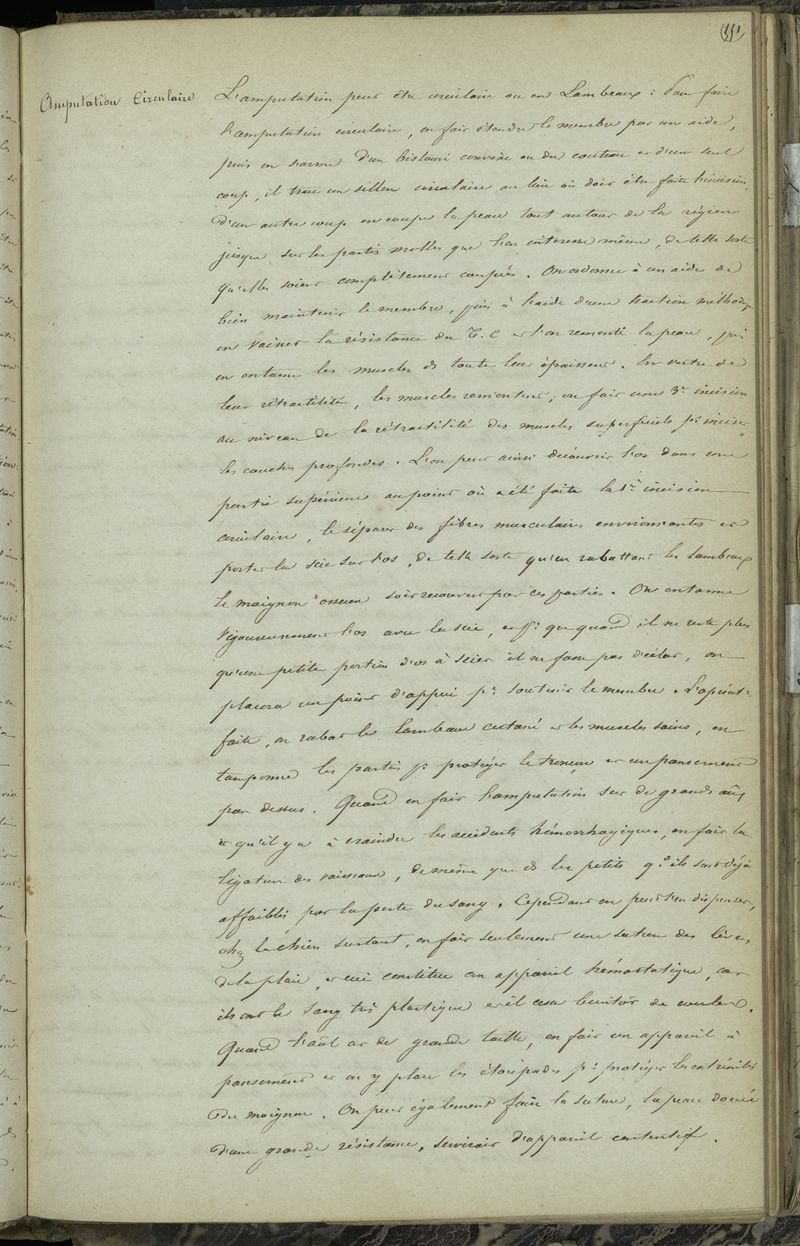 111
Amputation Circulaire
L'amputation peut être circulaire ou en Lambeaux : Pour faire
l'amputation circulaire, on fait étendre le membre par un aide,
puis on s'arme d'un bistouri convexe ou du couteau et d'un seul
coup, il trace un sillon circulaire au lieu où doit être faite l'incision.
D'un autre coup on coupe la peau tout autour de la région
jusque sur les parties molles que l'on intéresse même, de telle sorte
qu'elles soient complètement coupées. On ordonne à un aide de
bien maintenir le membre, puis à l'aide d'une traction méthodiq
on vainct la résistance du T. C et l'on remonte la peau, puis
on entame les muscles ds toute leur épaisseur. En vertu de
leur rétractilité, les muscles remontent ; on fait une 3e incision
au niveau de la rétractilité des muscles superficiels pr inciser
les couches profondes. L'on peut ainsi découvrir l'os dans une
partie supérieure au point où a été faite la 1re incision
circulaire, le séparer des fibres musculaires environnantes et
porter la scie sur l'os, de telle sorte qu'en rabattant les lambeaux
le moignon osseux soit recouvert par ces parties. On entame
vigoureusement l'os avec la scie, et pr que quand il ne reste plus
qu'une petite portion d'os à scier il ne fasse pas d'éclat, on
placera un point d'appui pr soutenir le membre. L'opérat:
faite, on rabat les lambeaux cutané et les muscles sains, on
tamponne les parties pr protéger le tronçon et un pansement
par dessus. Quand on fait l'amputation sur de grands aux
et qu'il y a à craindre les accidents hémorrhagiques, on fait la
ligature des vaisseaux, de même que ds les petits qd ils sont déjà
affaiblis par la perte du sang. Cependant on peut s'en dispenser,
chez le chien surtout, on fait seulement une suture des lèvres
de la plaie, et ceci constitue un appareil hémostatique, car
ils ont le sang très plastique et il cesse bientôt de couler.
Quand l'aal est de grande taille, on fait un appareil à
pansement et on y place les étoupades pr protéger les extrémités
du moignon. On peut également faire la suture, la peau douée
d'une grande résistance, servirait d'appareil contentif.